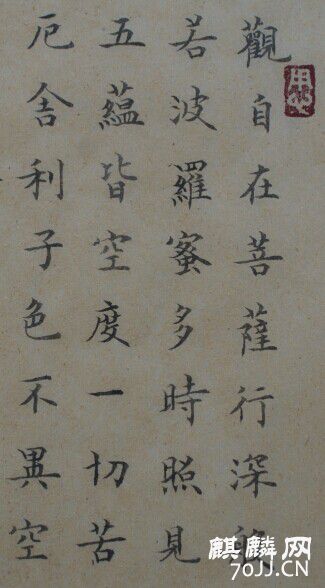 觀自在菩薩行深般
若波羅蜜多時照見
五蘊皆空度一切苦
厄舍利子色不異空
麒麟网
70JJ.CN